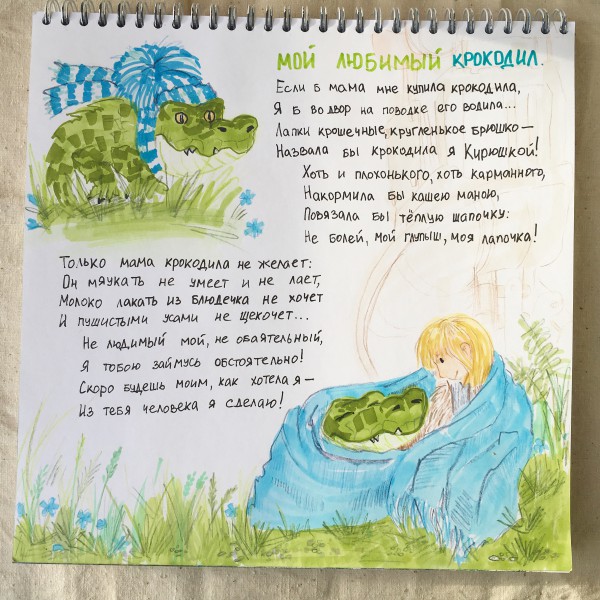 МОЙ ЛЮБИМЫЙ КРОКОДИЛ.
Если б мама мне купила крокодила,
Я б во двор на поводке его водила...
Лапки крошечные, кругленькое брюшко —
Назвала бы крокодила я Кирюшкой!
Хоть и плохонького, хоть карманного,
Накормила бы кашею манною,
Повязала бы тёплую шапочку:
Не болей, мой глупыш, моя лапочка!
Только мама крокодила не желает:
Он мяукать не умеет и не лает,
Молоко лакать из блюдечка не хочет
И пушистыми усами не щекочет...
Не людимый мой, не обаятельный,
Я тобою займусь обстоятельно!
Скоро будешь моим, как хотела я —
Из тебя человека я сделаю!